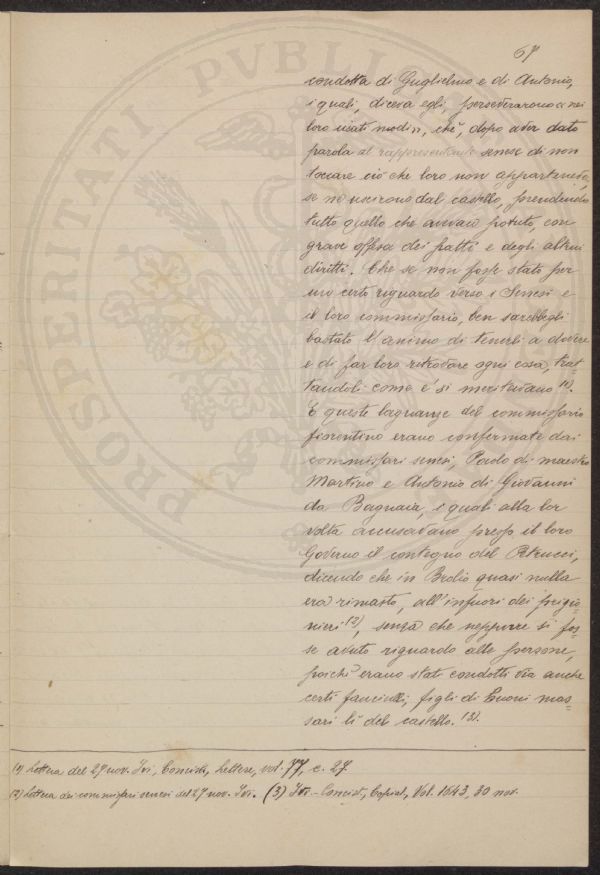 67
condotta di Guglielmo e di Antonio,
i quali, diceva egli, perseverarono ci nei
loro usati modi, chè, dopo aver dato
parola al rappresentante senese di non
toccare ciò che loro non apparteneva,
se ne uscirono dal castello, prendendo
tutto quello che avevan potuto, con
grave offesa dei patti e degli altrui
diritti. Che se non fosse stato per
un certo riguardo verso i Senesi e
il loro commissario, ben sarebbegli
bastato l'animo di tenerli a dovere
e di far loro ritrovare ogni cosa, trat=
tandoli come e' si meritavano (1).
E queste lagnanze del commissario
fiorentino erano confermate dai
commissari senesi, Paolo di maestro
Martino e Antonio di Giovanni
da Bagnaia, i quali alla lor
volta accusavano presso il loro
Governo il contegno del Petrucci,
dicendo che in Brolio quasi nulla
era rimasto, all'infuori dei prigio=
nieri (2), senza che neppure si fos=
se avuto riguardo alle persone,
poichè erano stati condotti via anche
certi fanciulli, figli di buoni mas=
sari lì del castello. (3).
(1) Lettera del 27 nov. Ivi, Concist., Lettere, vol. 77, c. 27.
(2) Lettera dei commissari senesi del 27 nov. Ivi. (3) Ivi - Concist., Copial., Vol. 1643, 30 nov.
PROSPERITATI PVBLIC